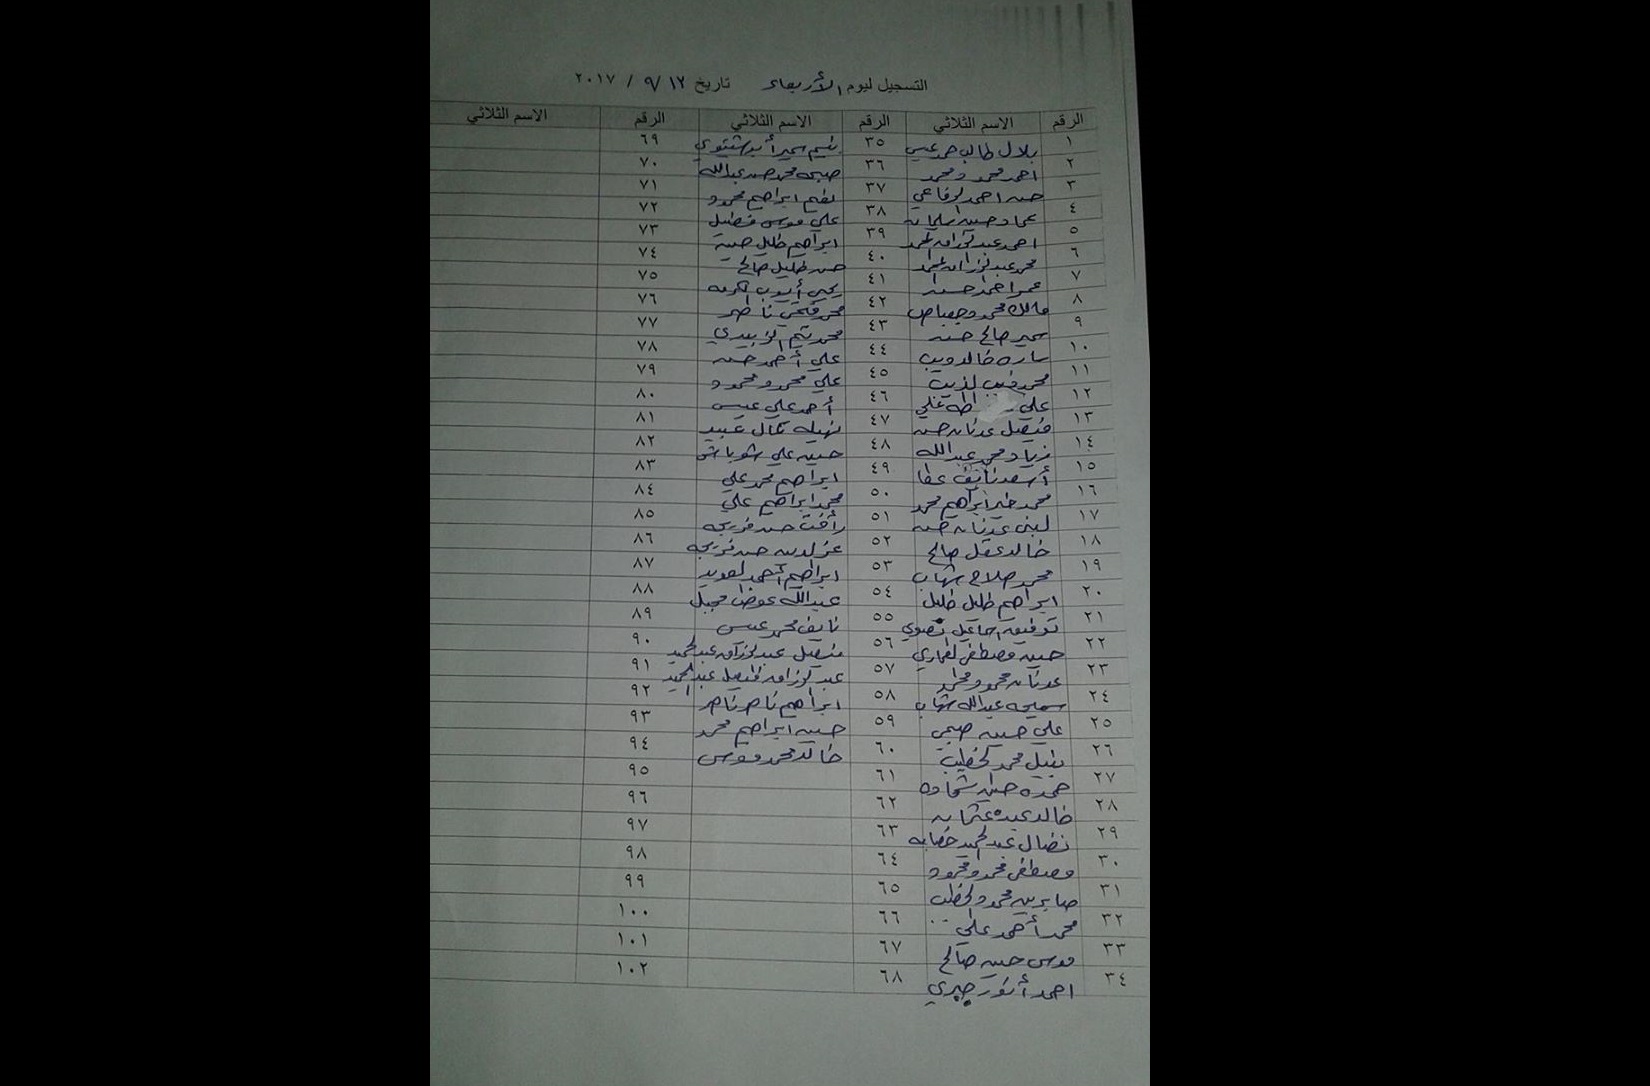 التسجيل ليوم الأربعاء تاريخ ١٢ / ٩ / ٢٠١٧
الرقم الاسم الثلاثي الرقم الاسم الثلاثي الرقم الاسم الثلاثي
١ بلال طالب ٣٥ نسيم سمير أبو شتيوي ٦٩
٢ احمد محمود محمد ٣٦ صبحه محمد عبدالله ٧٠
٣ حسن احمد الرفاعي ٣٧ نعيم ابراهيم محمود ٧١
٤ عماد حسين سليمان ٣٨ علي موسى فضيل ٧٢
٥ احمد عبد الرزاق ٣٩ ابراهيم خليل ٧٣
٦ محمد عبد الرزاق ٤٠ حسن خليل صالح ٧٤
٧ عمر احمد حسن ٤١ يحيى أيوب ٧٥
٨ مالك محمود ٤٢ محمد فتحي ناصر ٧٦
٩ سمير صالح حسن ٤٣ محمد تيم الزبيدي ٧٧
١٠ ساره خالد ديب ٤٤ علي أحمد حسن ٧٨
١١ محمد ديب ٤٥ علي محمود محمود ٧٩
١٢ علي طه علي ٤٦ أحمد علي عيسى ٨٠
١٣ فيصل عدنان حسن ٤٧ نهيله كمال عبيد ٨١
١٤ زياد محمد عبدالله ٤٨ حسين علي شوباش ٨٢
١٥ أسعد نايف عطا ٤٩ ابراهيم محمد علي ٨٣
١٦ محمد خير ابراهيم محمد ٥٠ محمد ابراهيم علي ٨٤
١٧ لبنى عدنان حسن ٥١ رأفت حسن فريجه ٨٥
١٨ خالد عقل صالح ٥٢ عز الدين حسن فريجه ٨٦
١٩ محمد صلاح شهاب ٥٣ ابراهيم أحمد العويد ٨٧
٢٠ ابراهيم خليل خليل ٥٤ عبدالله عوض مجبل ٨٨
٢١ توفيق اسماعيل ٥٥ نايف محمد عيسى ٨٩
٢٢ حسين مصطفى الغماري ٥٦ فيصل عبد الرزاق عبد الحميد ٩٠
٢٣ عدنان محمود محمد ٥٧ عبد الرزاق فيصل عبد الحميد ٩١
٢٤ سميحه عبدالله شهاب ٥٨ ابراهيم ناصر ناصر ٩٢
٢٥ علي حسين صبحي ٥٩ حسين ابراهيم محمد ٩٣
٢٦ نبيل محمد الخطيب ٦٠ خالد محمد موسى ٩٤
٢٧ حمده حسن شحاده ٦١ ٩٥
٢٨ خالد عبده عثمان ٦٢ ٩٦
٢٩ نضال عبد الحميد ٦٣ ٩٧
٣٠ مصطفى محمود محمود ٦٤ ٩٨
٣١ صابرين محمود الخطيب ٦٥ ٩٩
٣٢ محمد أحمد علي ٦٦ ١٠٠
٣٣ موسى حسين صالح ٦٧ ١٠١
٣٤ احمد أنور جبري ٦٨ ١٠٢